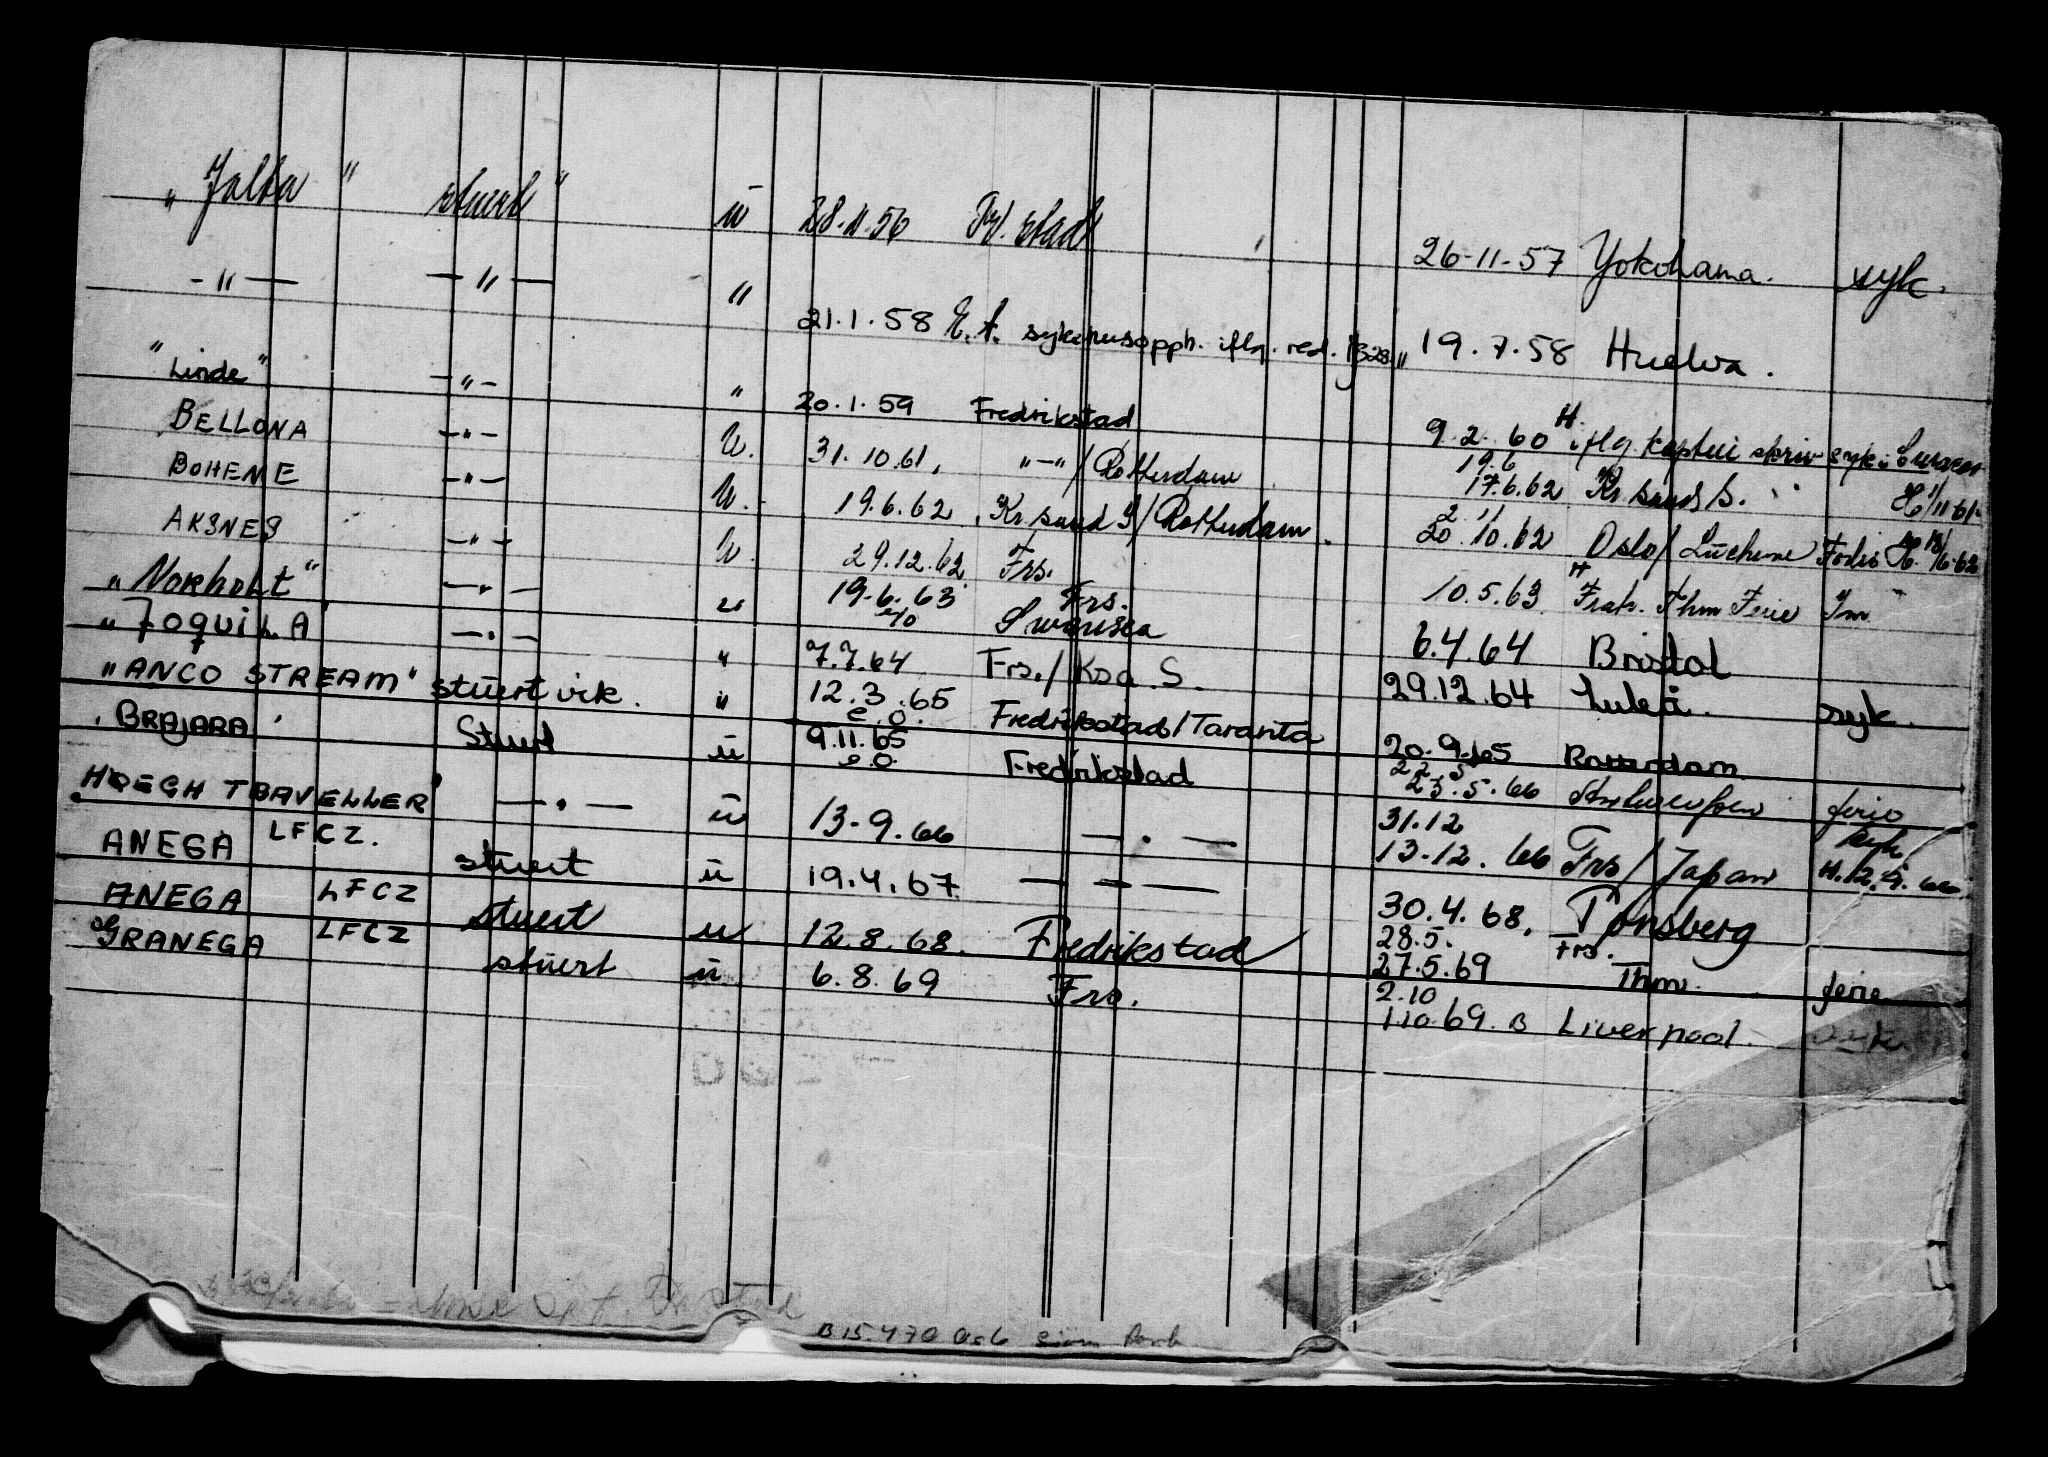 "Jalta" stuert" ū 28.11.56 Fr. stad 26-11-57 Yokohama. syk.
-"- -"- " 21.1.58 E. A. sykehusopph. iflg. red. 19.7.58 Huelva.
"Linde" -"- " 20.1.59 Fredrikstad 9.2.60 iflg. kaptei skriv syk i Curacao
BELLONA -"- U. 31.10.61, "-"/Rotterdam 19.6 17.6.62 Kr. sand S. H 1/11 61
BOHEME -"- U. 19.6.62 Kr. sand S/Rotterdam. 2.11 20.10.62 Oslo/
AKSNES -"- U. 29.12.62 Frs. 10.5.63 Thm Ferie
"NORHOLT" -"- u 19.6.63 Frs. Swansea 6.4.64 Bristol
"JOQUILA -"- " 7.7.64 Frs./Ksa. S. 29.12.64 Luleå. syk.
"ANCO STREAM" stuert vik. " 12.3.65 e.o. Fredrikstad/Taranta 20.9.65 Rotterdam
"BRAJARA" Stuert ū 9.11.65 e.o. Fredrikstad 22.5 23.5.66 ferie
HØEGH TRAVELLER -"- ū 13.9.66 -"- 31.12 13.12.66 Frs/Japan syk H.12.9.66
ANEGA LFCZ. stuert ū 19.4.67 -"- 30.4.68, Tønsberg
ANEGA LFCZ stuert u 12.8.68. Fredrikstad 28.5. 27.5.69 Frs. Thm. ferie
GRANEGA LFCZ stuert ū 6.8.69 Frs. 2.10 1.10.69. B Liverpool. syk
B 15.470